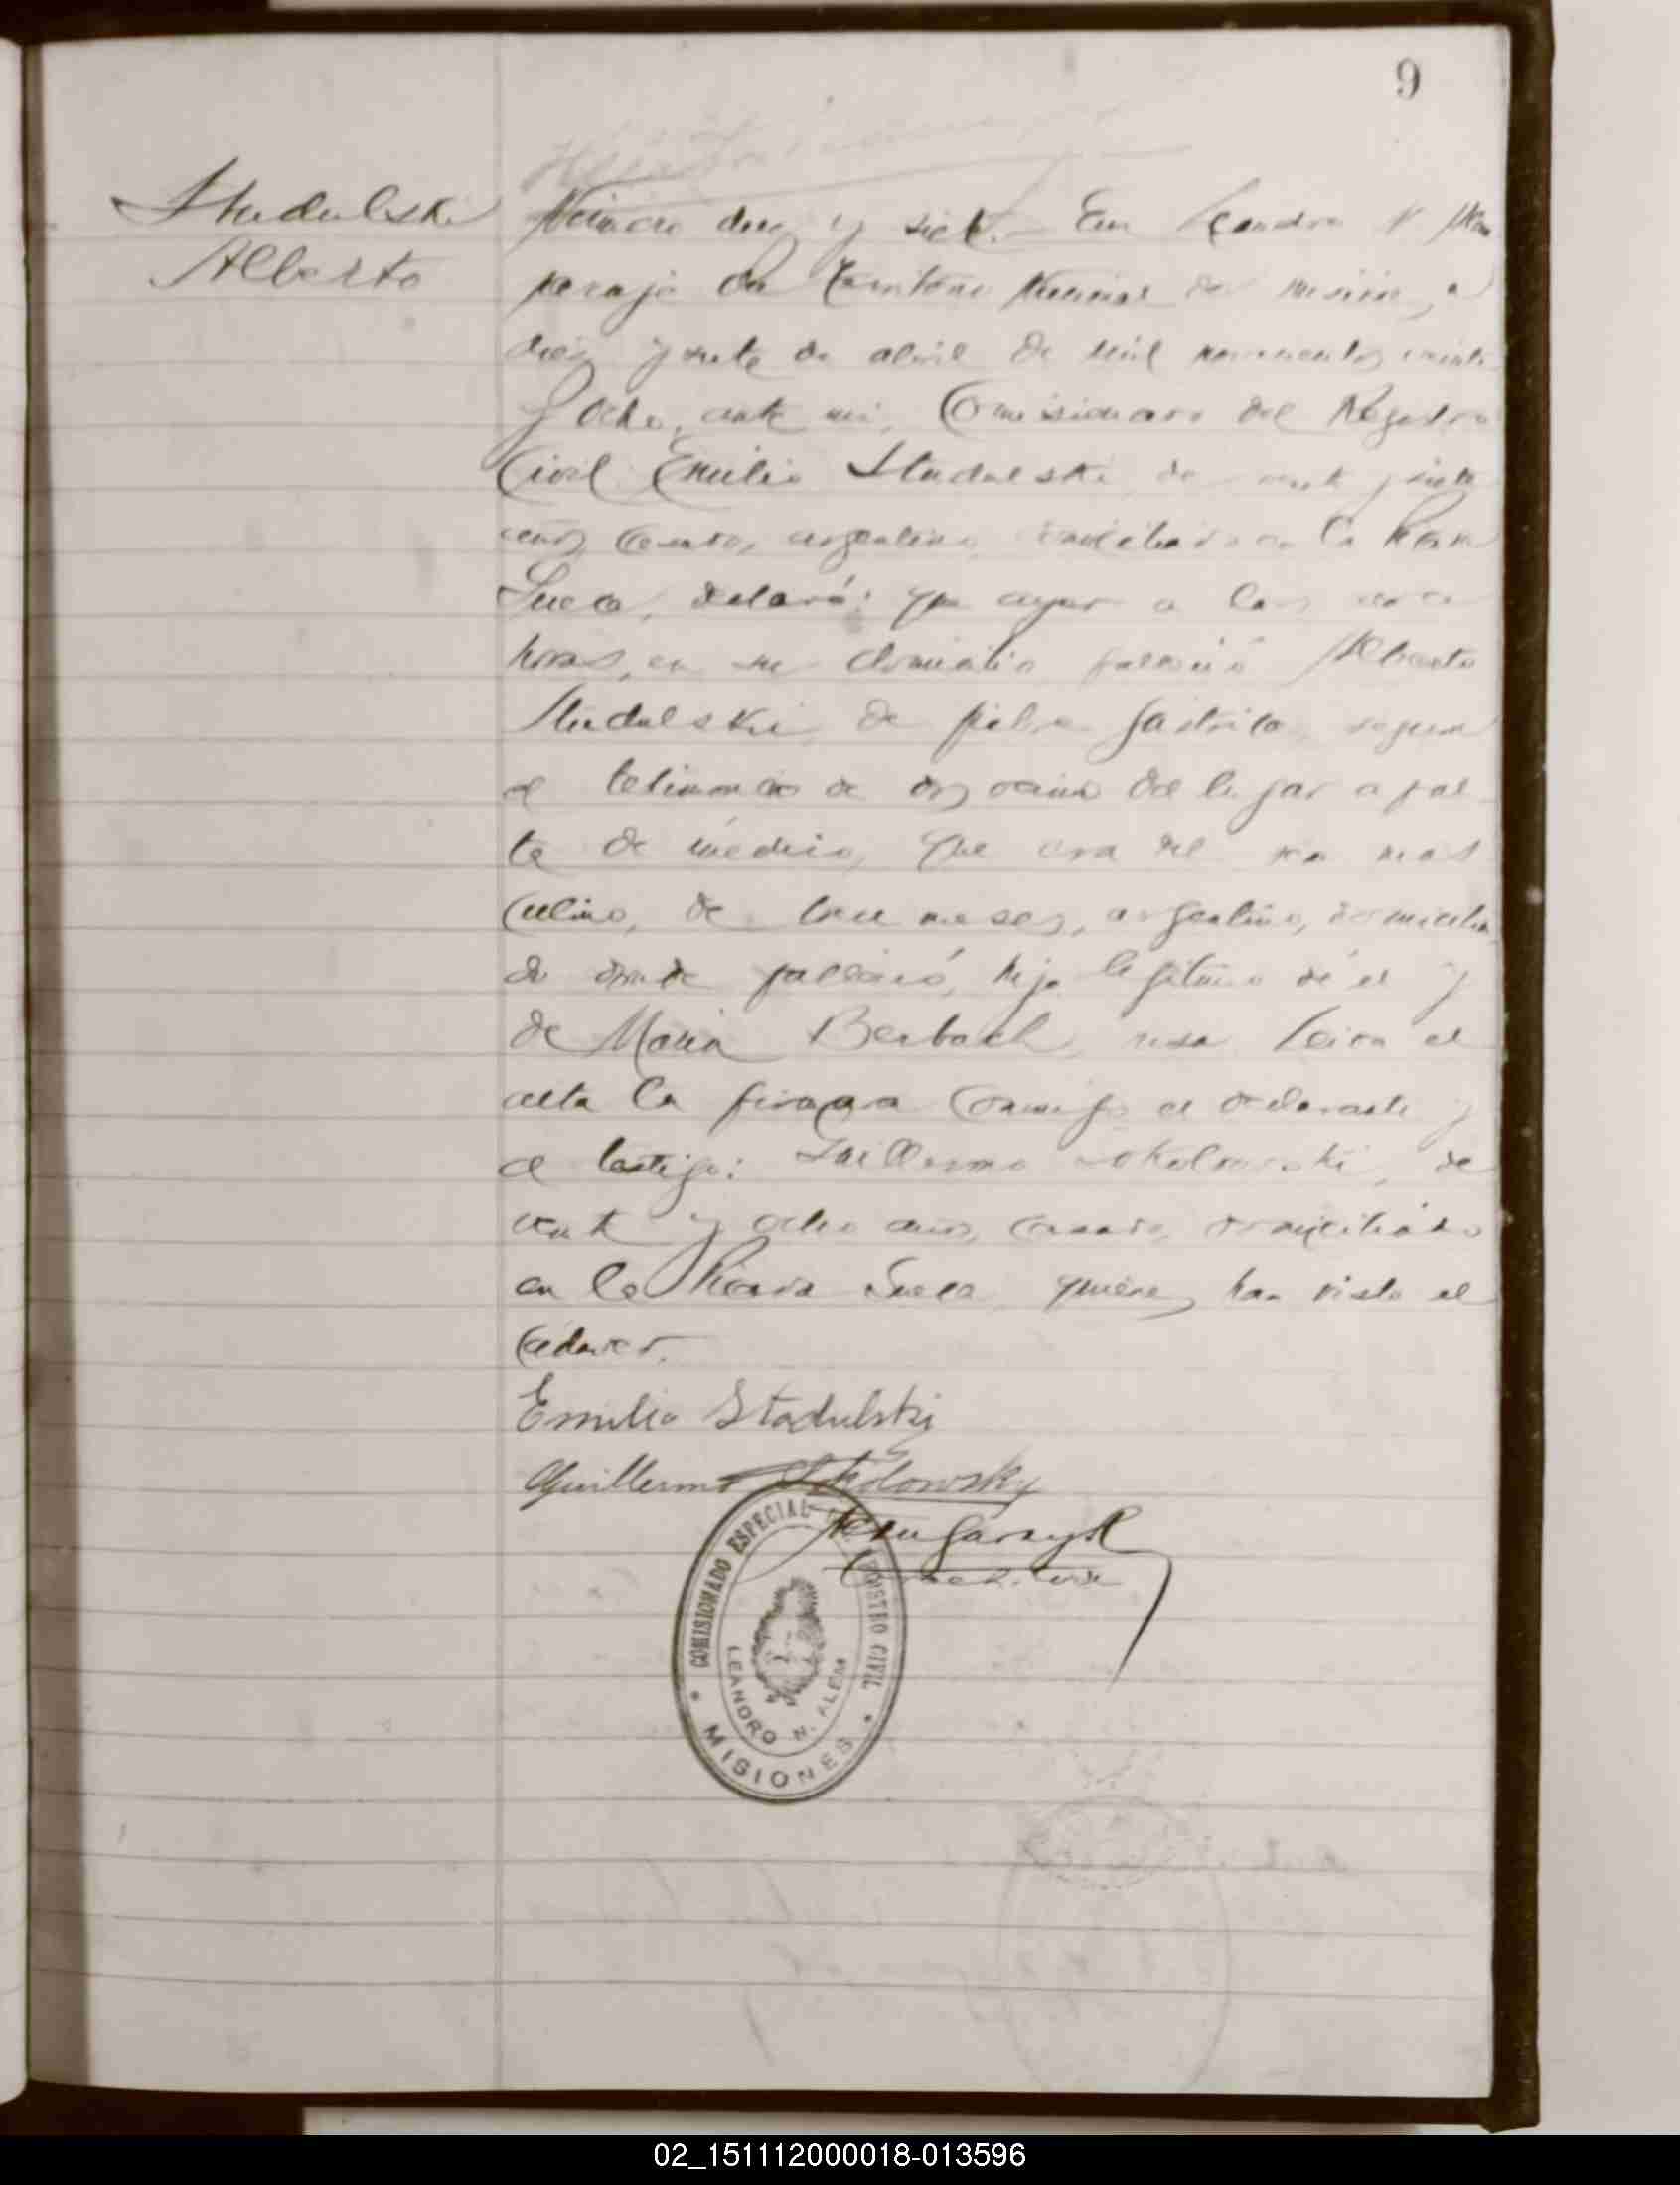 9
Studulski
Alberto
Número diez y siete.- En Leandro N Alem
paraje del Territorio Nacional de Misiones, a
diez y siete de abril de mil novecientos veinte
y ocho, ante mi, Comisionado del Registro
Civil Emilio Studulski de veinte y siete
años, casado, argentino, domiciliado en la Picada
Sueca, declaró: que ayer a las
horas, en su domicilio falleció Alberto
Studulski, de fiebre gastrica, segun
el testimonio de dos vecino del lugar a fal-
ta de médico, que era del sexo mas
culino, de meses, argentino, domicilia
do donde falleció, hijo legitimo de el y
de Maria Berbach, leida el
acta la firmara conmigo el declarante y
el testigo: Guillermo Sokolowski, de
veinte y ocho años, casado, domiciliado
en la Picada Sueca quienes han visto el
cádaver.
Emilio Stadulski
Guillermo Sokolowsky
COMISIONADO ESPECIAL DEL REGISTRO CIVIL
LEANDRO N. ALEM
• MISIONES •
02_151112000018-013596